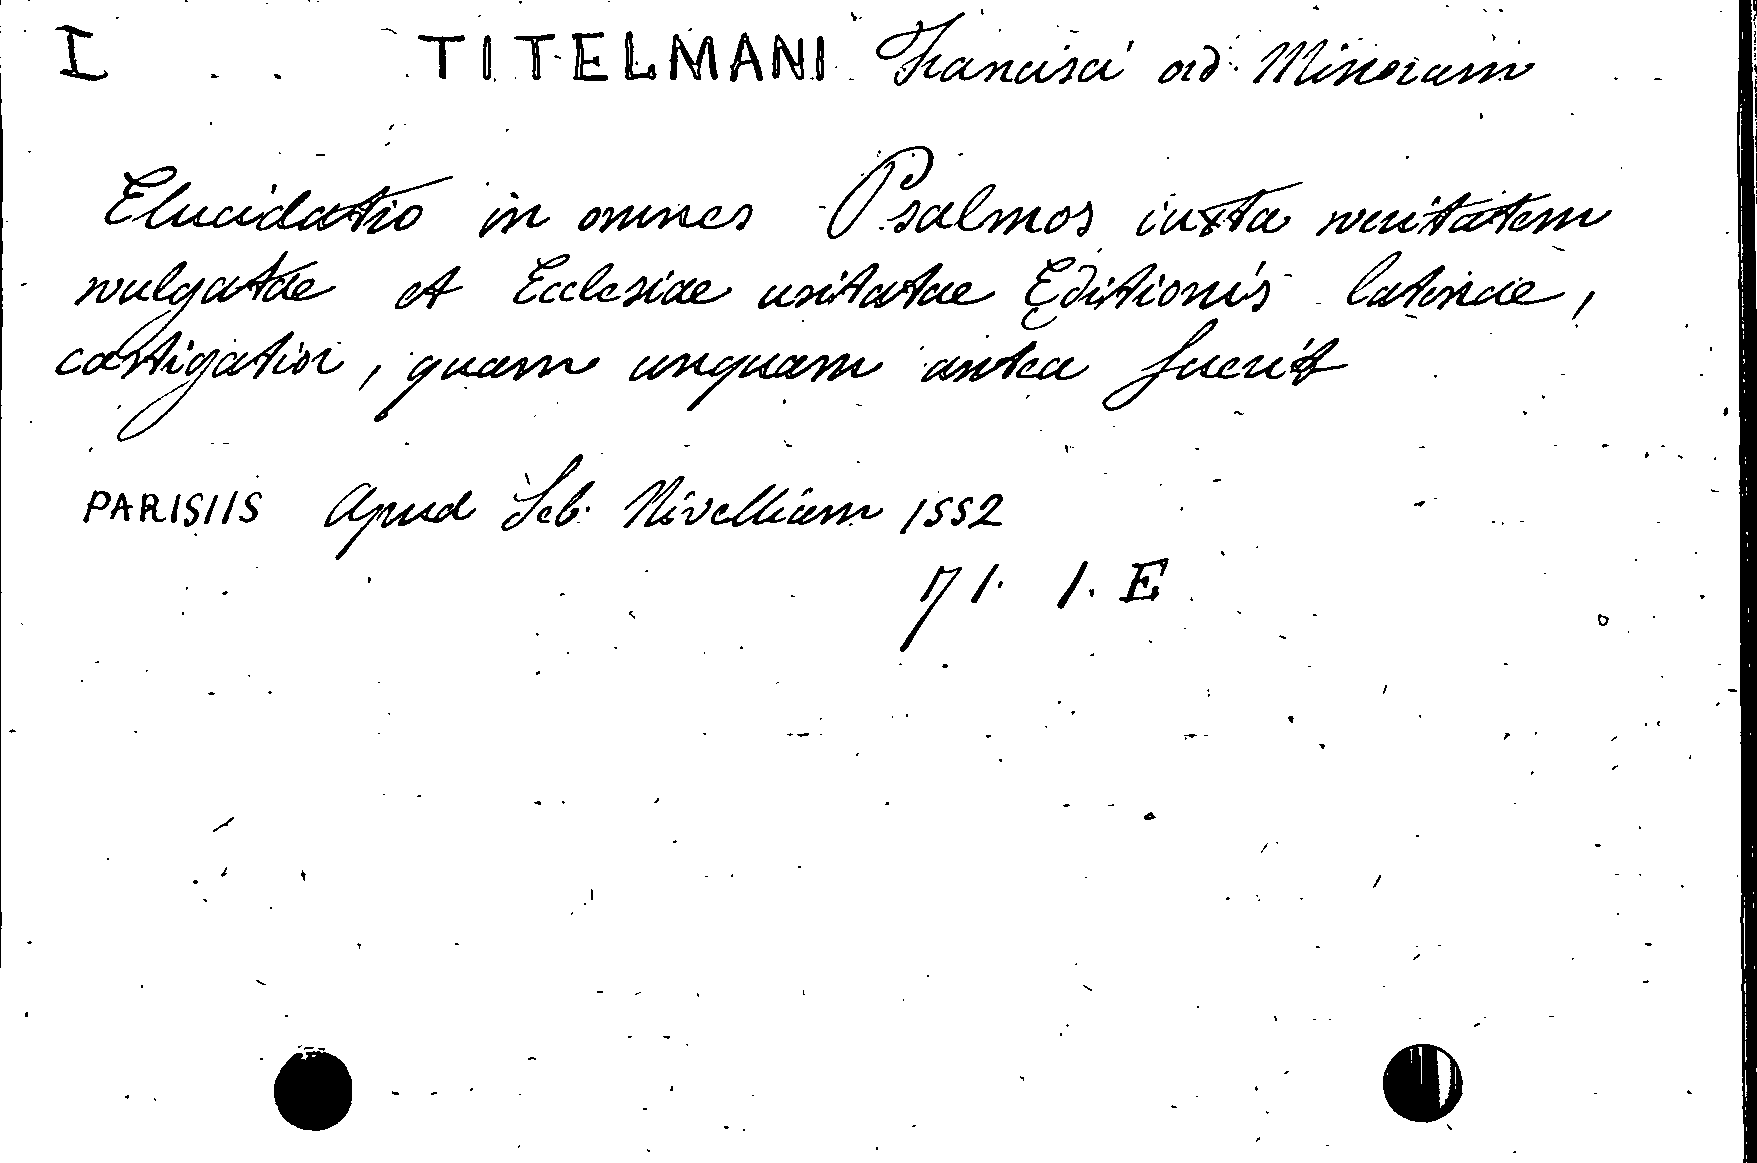 I TITELMANI Francisci ord. Minorum
Elucidatio in omnes Psalmos iuxta veritatem
vulgatae et Ecclesiae usitatae Editionis latinae,
castigatior, quam unquam antea fuerit
PARISIIS Apud Seb. Nivellium 1552
71. 1. E